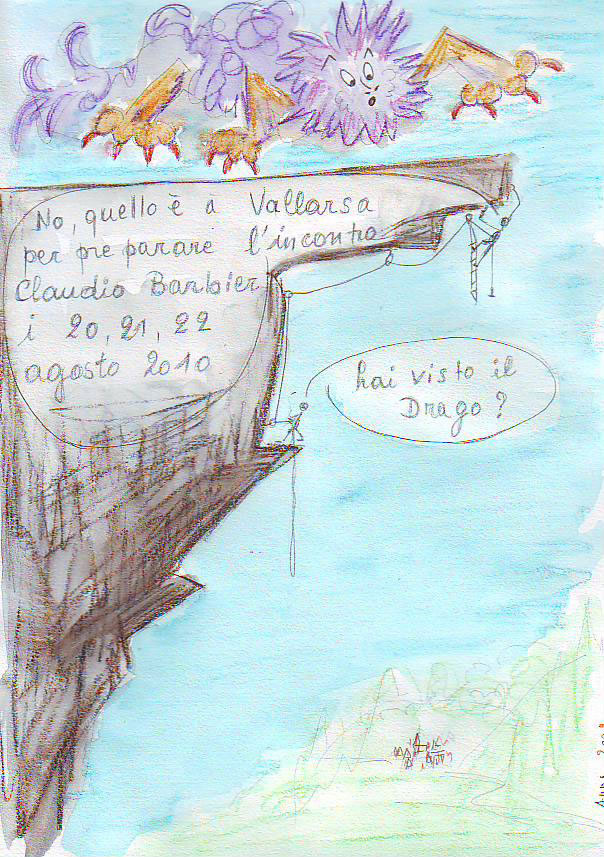 No, quello è a Vallarsa
per preparare l'incontro
Claudio Barbier
i 20, 21, 22
agosto 2010
hai visto il
Drago?